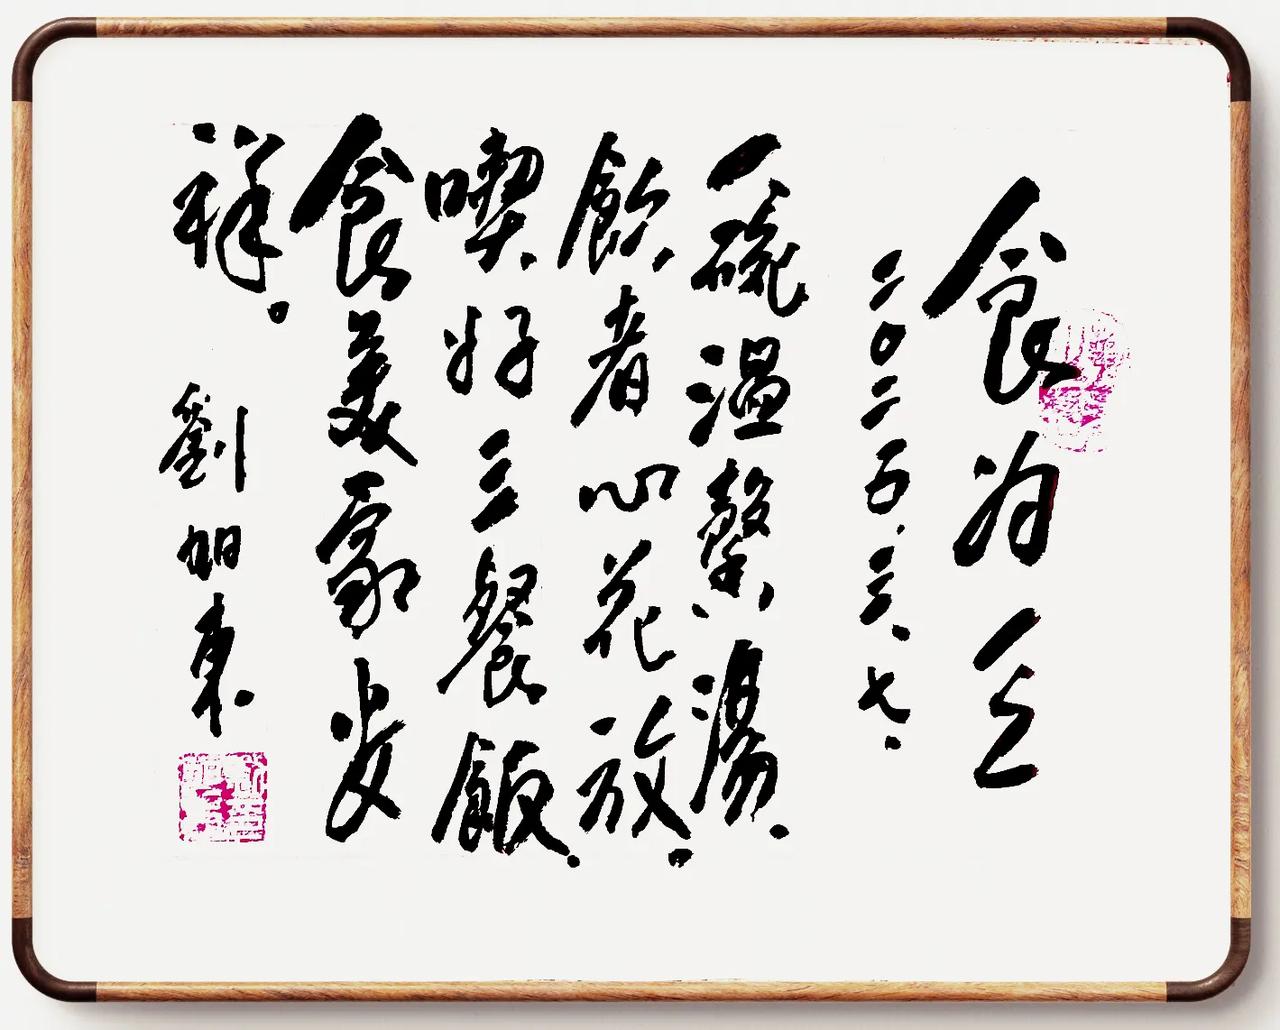 食为天
二0二五.三.七.
一碗溫馨湯.
飲者心花放.
喫好三餐飯.
食美家安
祥。
劉旭東